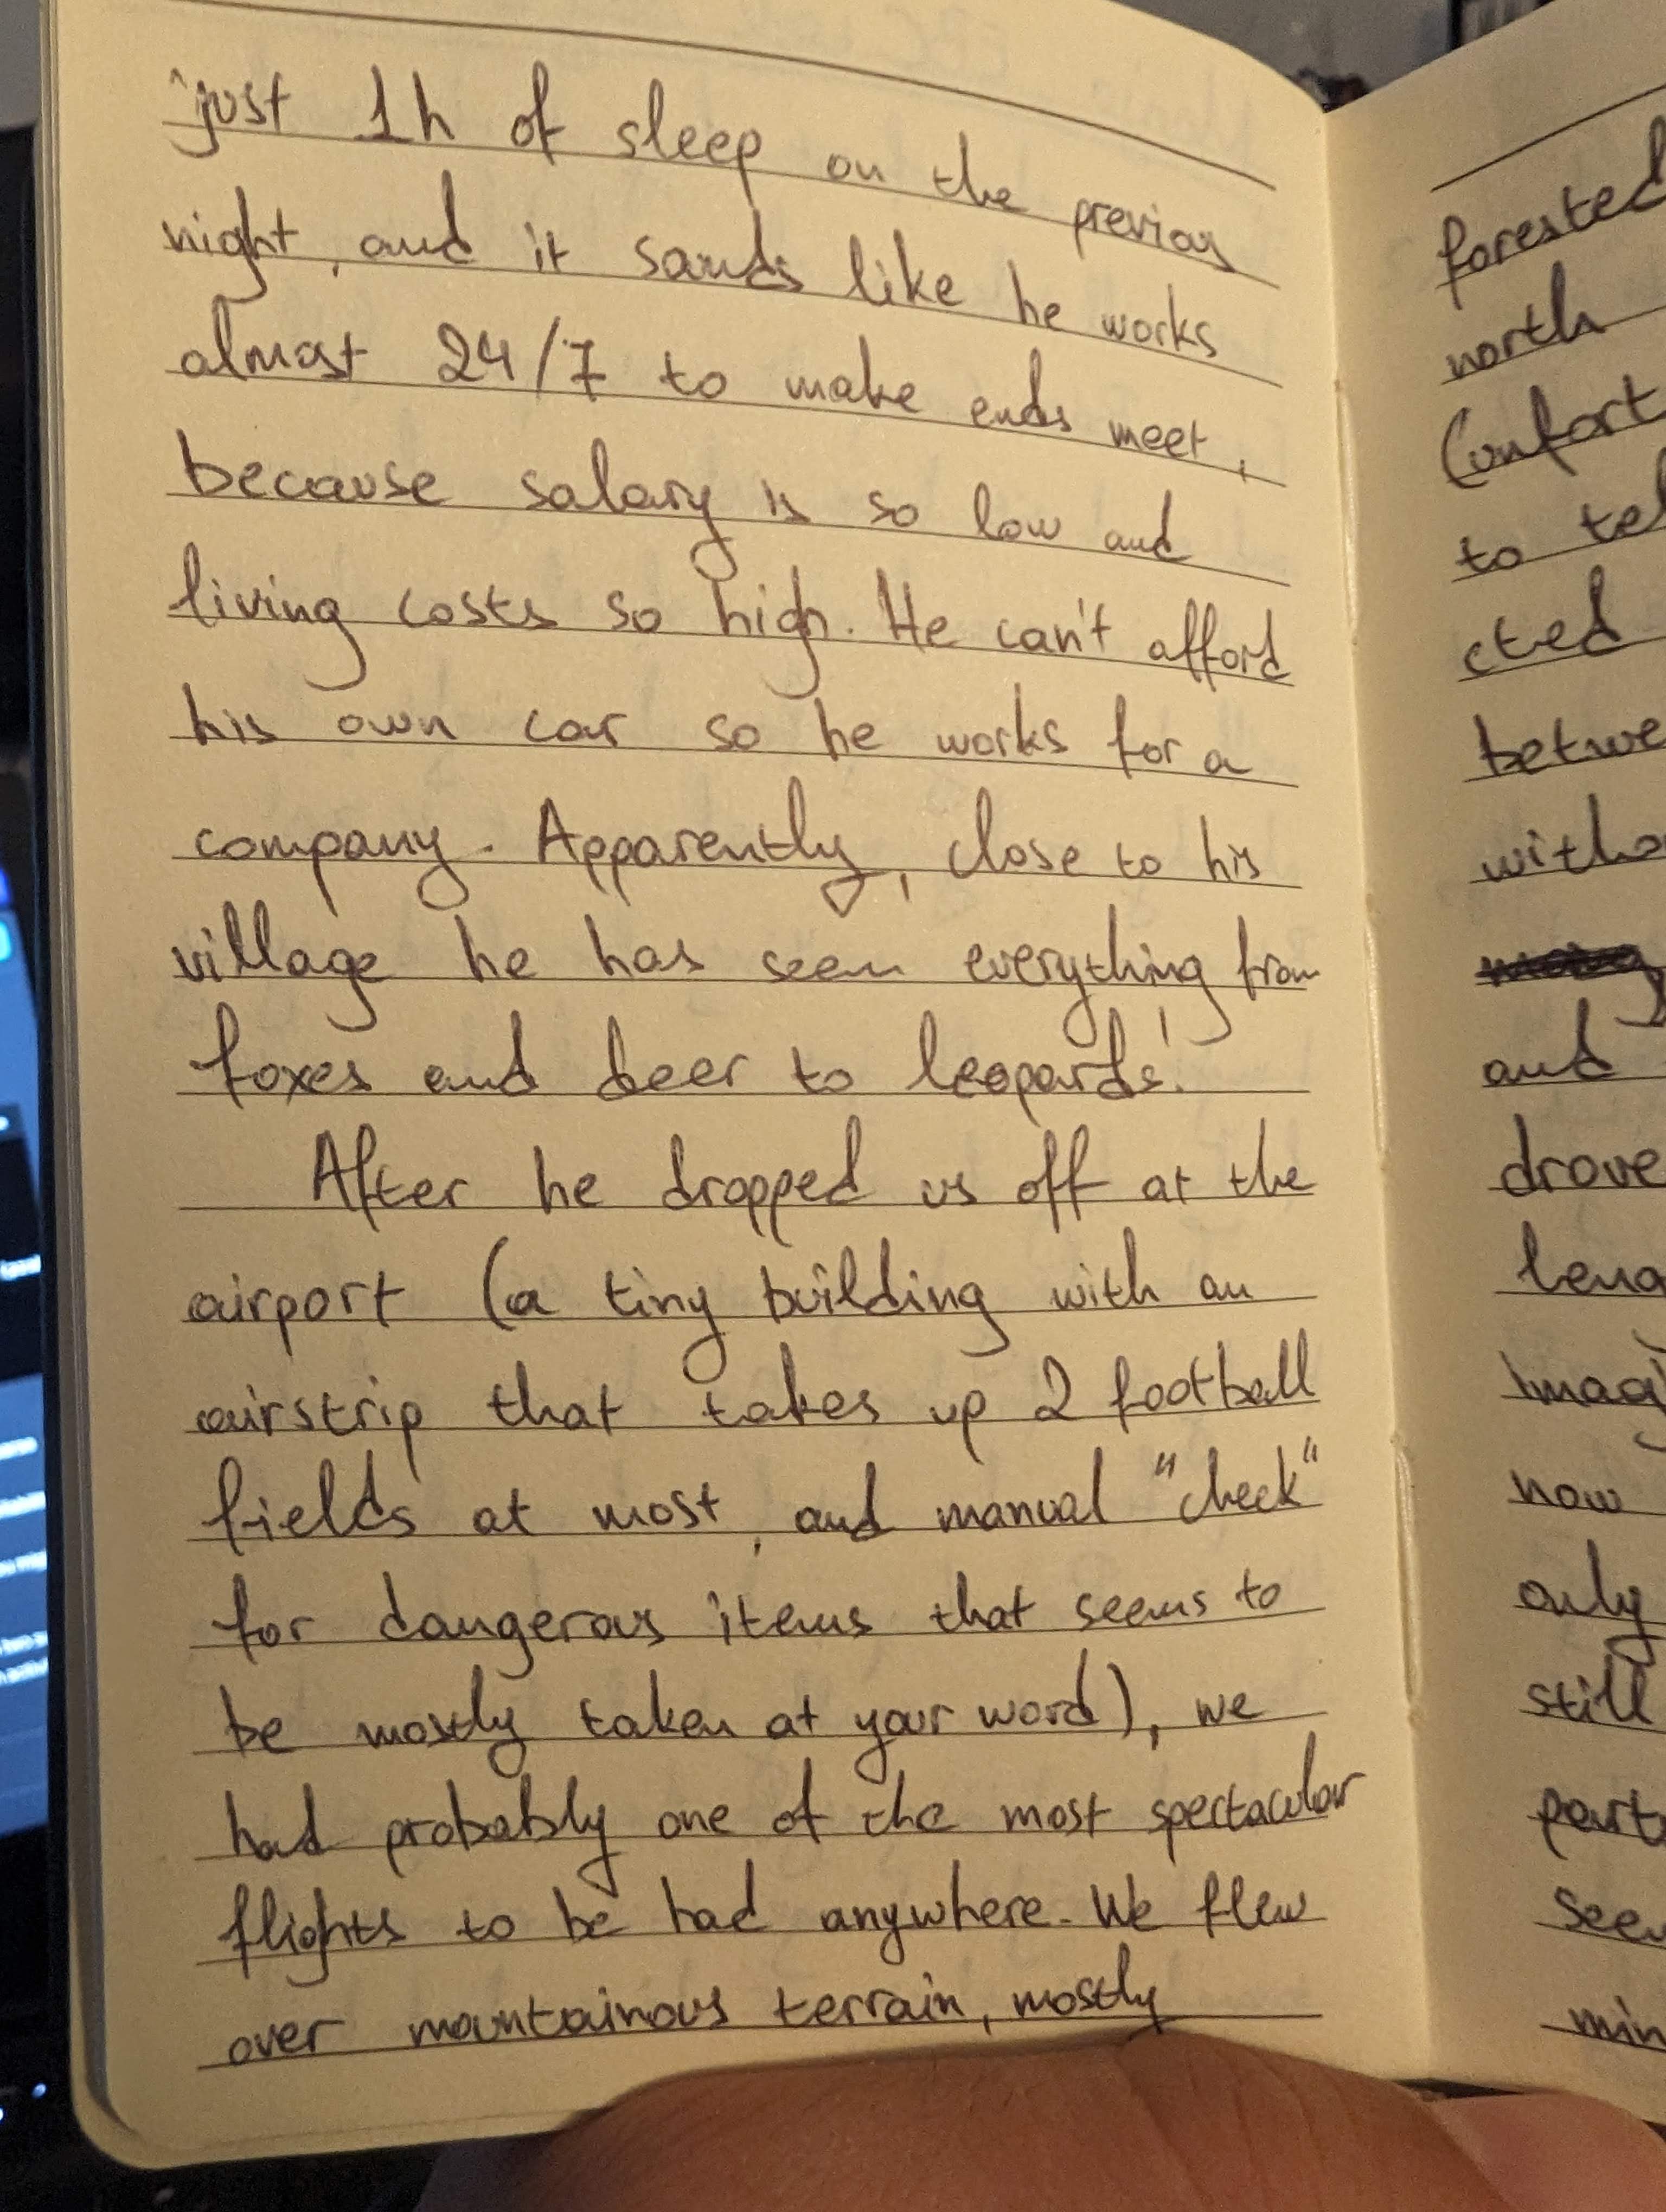 just 1h of sleep on the previous
night, and it sounds like he works
almost 24/7 to make ends meet,
because salary is so low and
living costs so high. He can't afford
his own car so he works for a
company. Apparently, close to his
village he has seen everything from
foxes and deer to leopards!
After he dropped us off at the
airport (a tiny building with an
airstrip that takes up 2 football
fields at most, and manual "check"
for dangerous items that seems to
be mostly taken at your word), we
had probably one of the most spectacular
flights to be had anywhere. We flew
over mountainous terrain, mostly
forested
north
to
cted
and
drove
now
only
still